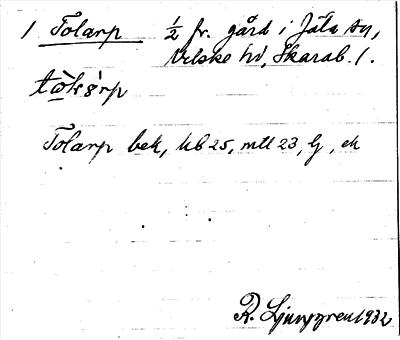 1 Tolarp ½ fr. gård i Jäla sn,
Vilske hd, Skarab. l.
Tolarp bek, kb 25, mtl 23, G, ek
R. Ljunggren 1932